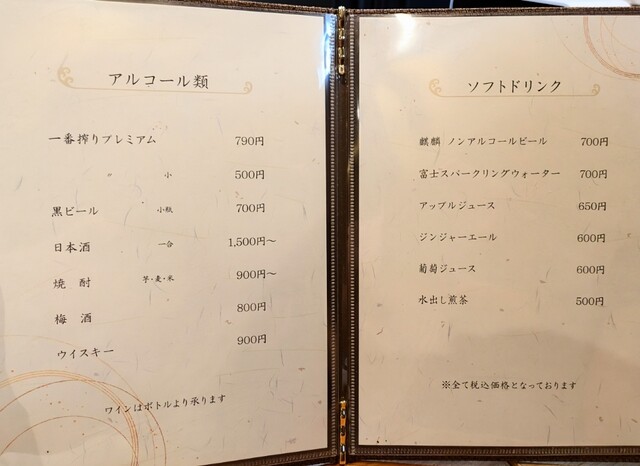 アルコール類
一番搾りプレミアム 790円
小 500円
黒ビール 小瓶 700円
日本酒 一合 1,500円〜
焼酎 芋・麦・米 900円〜
梅酒 800円
ウイスキー 900円
ワインはボトルより承ります
ソフトドリンク
麒麟 ノンアルコールビール 700円
富士スパークリングウォーター 700円
アップルジュース 650円
ジンジャーエール 600円
葡萄ジュース 600円
水出し煎茶 500円
※全て税込価格となっております